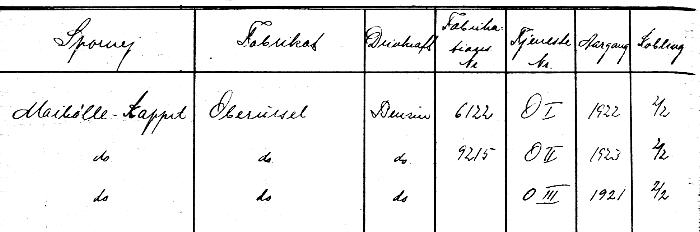 Sporvej Fabrikat Drivkraft Fabrika- tions Nr. Tjeneste Nr. Aargang Kobling
Maibölle-Kappel Oberursel Benzin 6122 O I 1922 2/2
do do do 9215 O II 1923 2/2
do do do O III 1921 2/2